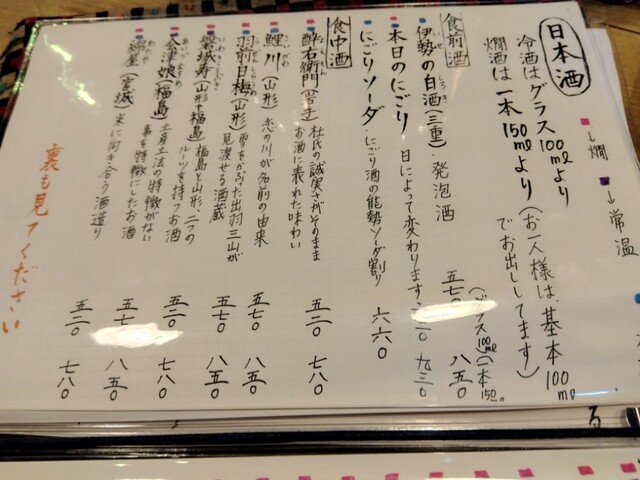 日本酒
↓燗 ↓常温
冷酒はグラス100mlより(お一人様は、基本100ml
燗酒は一本150mlより でお出ししてます)
(グラス100ml)(一本150ml)
食前酒
伊勢の白酒(三重)・発泡酒 五七〇 八五〇
本日のにごり 日によって変わります 九三〇
にごりソーダ・にごり酒の能勢ソーダ割り 六六〇
食中酒
酔右衛門(岩手) 杜氏の誠実さがそのままお酒に表れた味わい 五二〇 七八〇
鯉川(山形) 恋の川が名前の由来 五七〇 八五〇
羽前白梅(山形) 雪をかぶった出羽三山が見渡せる酒蔵 五七〇 八五〇
磐城寿(山形+福島) 福島と山形、二つのルーツを持つお酒 五二〇 七八〇
会津娘(福島) 土産土法の特徴がない事を特徴にしたお酒 五七〇 八五〇
綿屋(宮城) 米に向き合う酒造り 五二〇 七八〇
裏も見てください